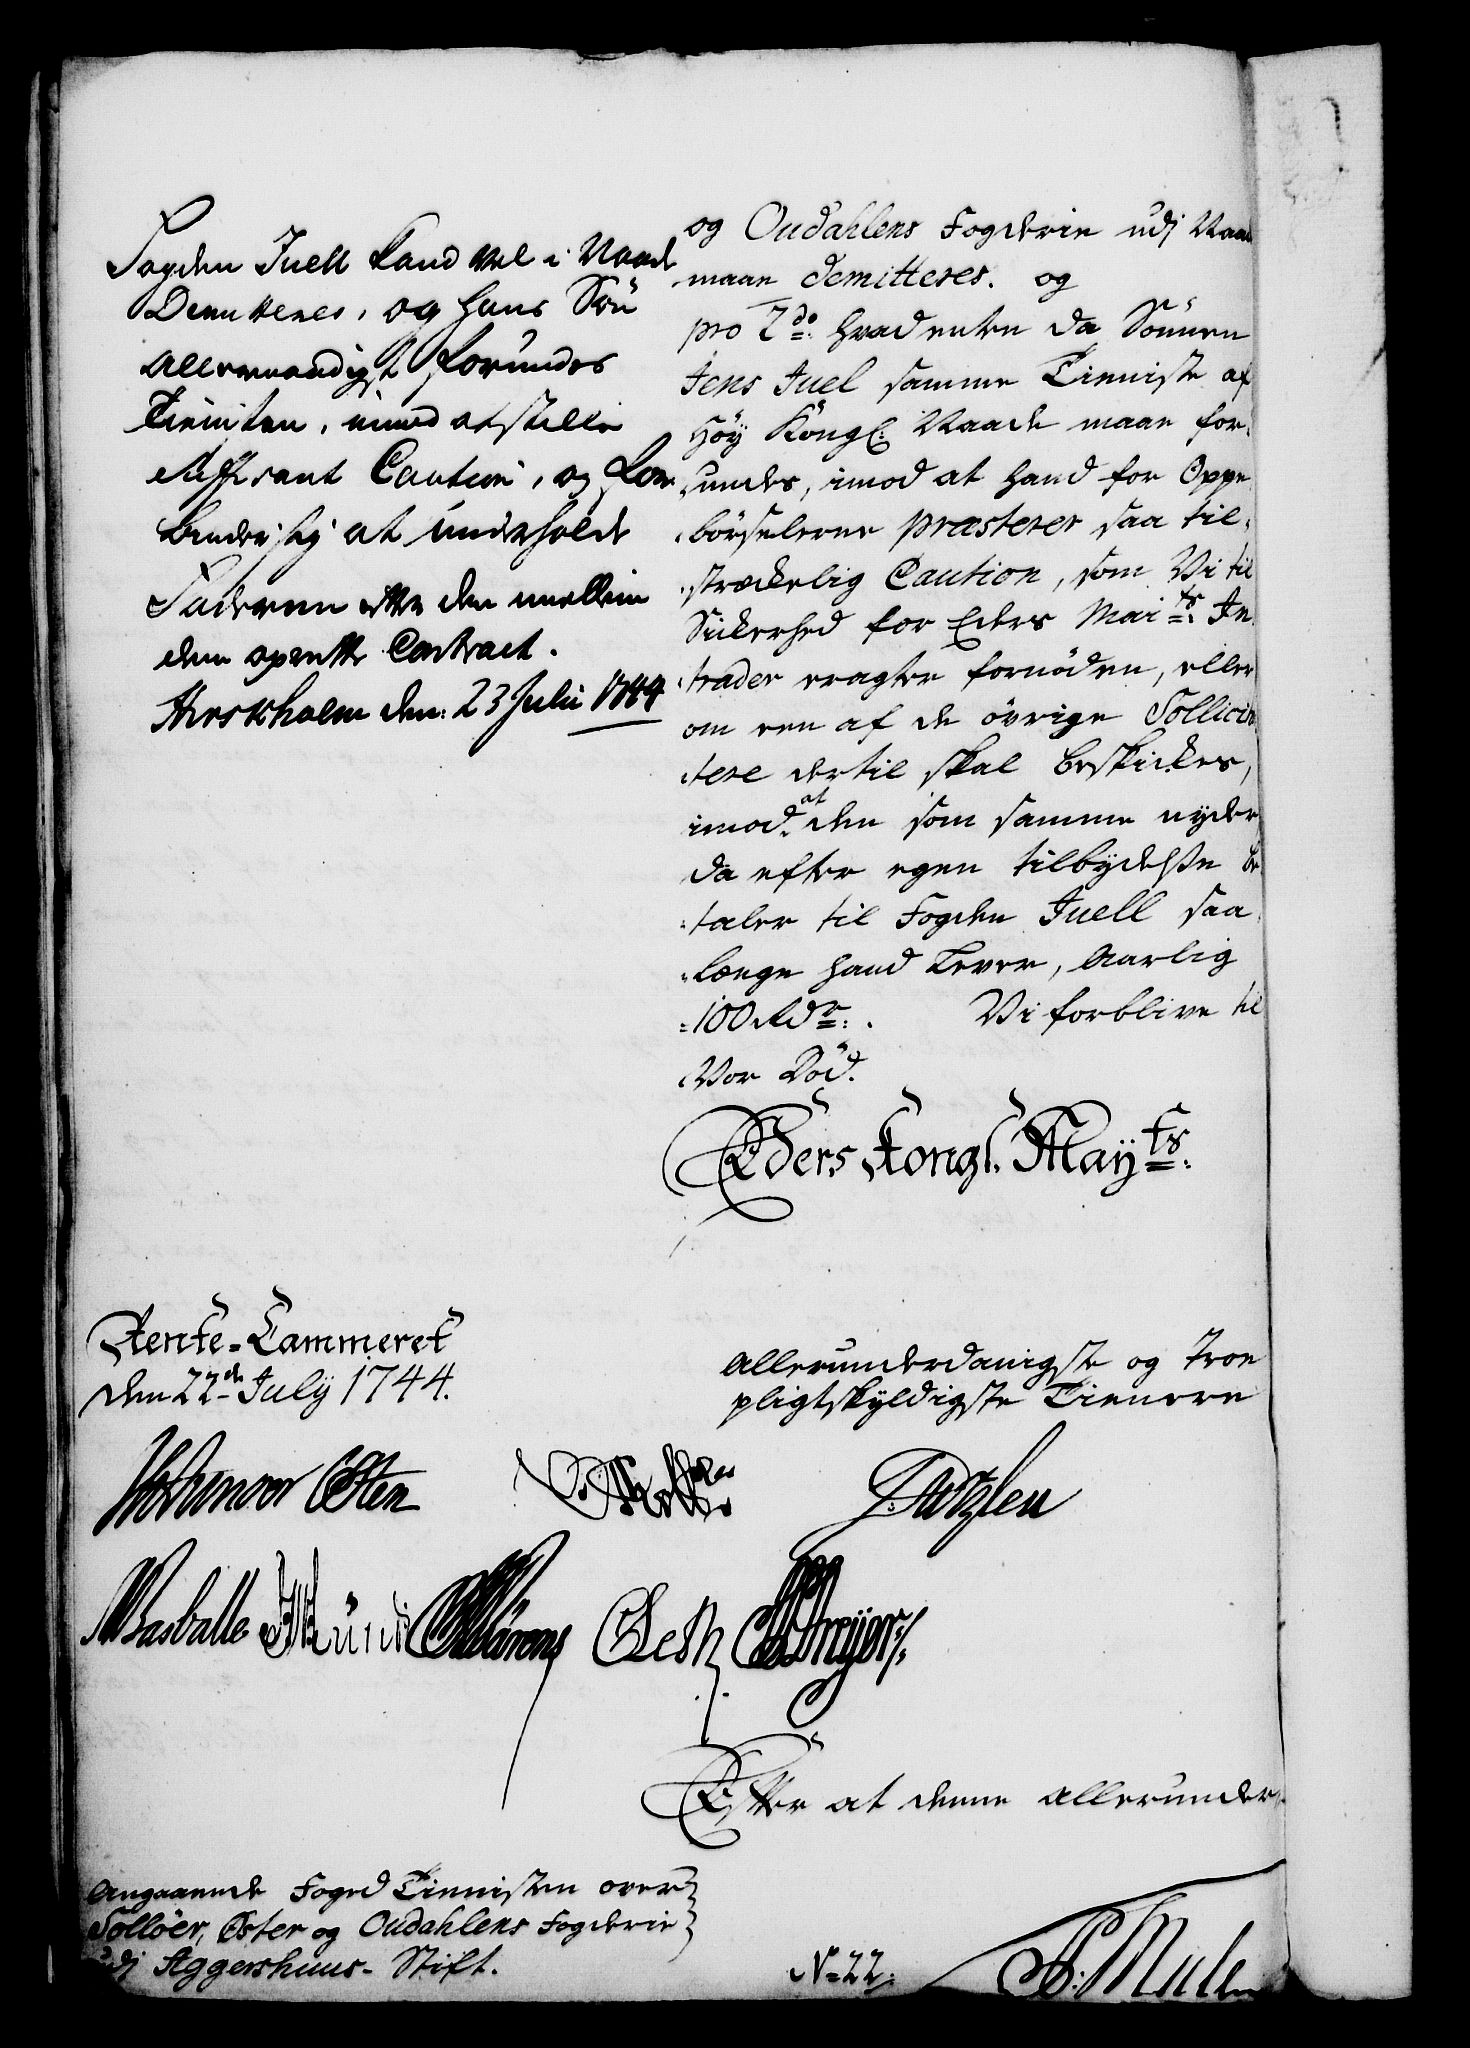 Fogden Juell kand vel i Naade
Demitteres, og hans Sön
allernaadigst forundes
Tienisten, imod at stille
suffisant Caution, og for
binder sig at underholde
Faderen efter den mellem
dem oprette Contract.
Hirschholm den: 23 Julii 1744
og Oudahlens Fogderie udj Naade
maae demitteres. og
pro 2do: hvad enten da Sönnen
Jens Juel samme Tieniste af
Höy Köngl: Naade maae for,
,undes, imod at hand for Oppe,
,börselerne præsterer saa til,
,strækkelig Caution, som Vi til
Sickerhed for Eders Maits: In,
,trader eragter fornöden, eller
om een af de övrige Sollici,
,tere dertil skal beskickes,
imod, at den som samme nyder
da efter egen tilbydelse be,
,taler til Fogden Juell saa
,længe hand Lever, Aarlig
100 Rdr:. Vi forblive til
Vor Död.
Eders Kongl. Mayts:
Rente-Cammeret
den 22de July 1744.
Allerunderdanigste og Troe
pligtskyldigste Tienere
Osten
Basballe
Efter at denne allerunder,
Angaaende Foged Tienisten over
Sollöer, Öster og Oudahlens Fogderie
udj Aggershuus-Stift.
No 22.